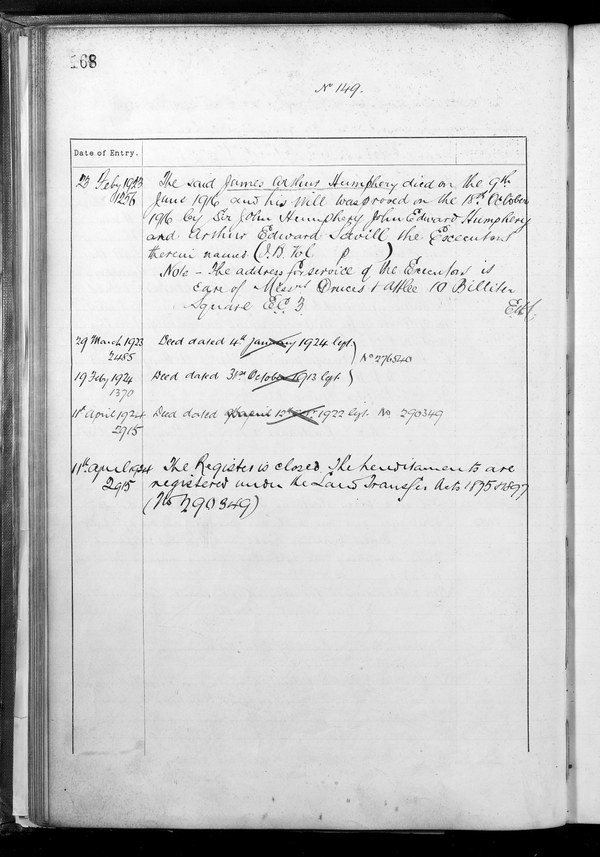 168
No 149.
Date of Entry.
23 Feby 1923 The said James Arthur Humphery died on the 9th
1256 June 1916 and his Will was proved on the 18th October
1916 by Sir John Humphery John Edward Humphery
and Arthur Edward Savill the Executors
therein named (I.B. Vol p )
Note – The address for service of the Executors is
care of Messrs Druces & Attlee 10 Billiter
Square E.C. 3.
29 March 1923 Deed dated 4th January 1924 Regt
2485 No 276540
19 Feby 1924 Deed dated 31st October 1913 Regt
1370
11th April 1924 Deed dated 12th 1922 Regt. No 290349
2915
11th April 1924 The Register is closed The hereditaments are
2915 registered under the Land Transfer Acts 1875 & 1897
(No 290349)